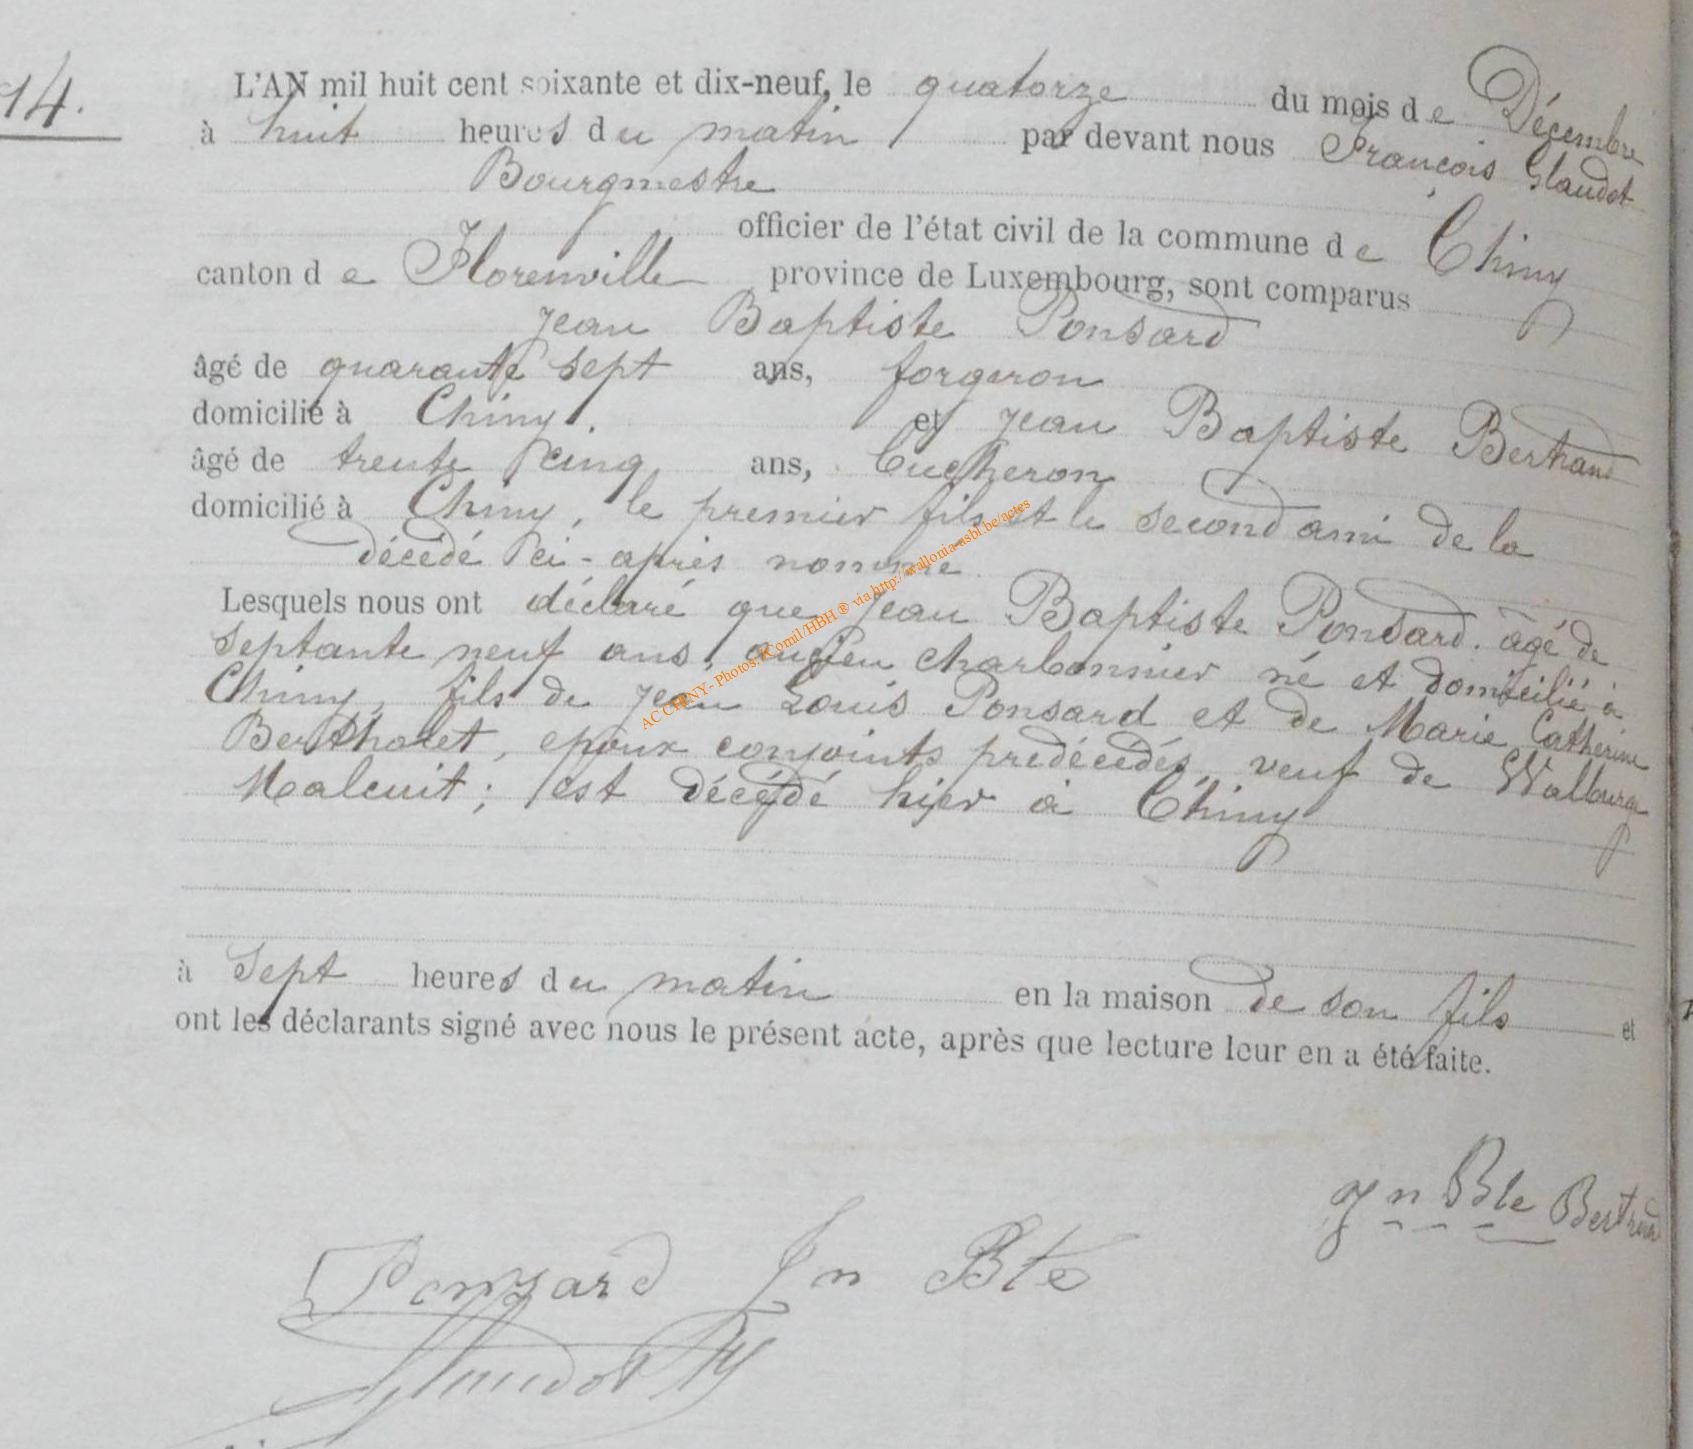 14.
L'AN mil huit cent soixante et dix-neuf, le quatorze du mois de Décembre
à huit heures du matin par devant nous François Glaudot
Bourgmestre
officier de l'état civil de la commune de Chiny
canton de Florenville province de Luxembourg, sont comparus
Jean Baptiste Ponsard
âgé de quarante sept ans, forgeron
domicilié à Chiny. et Jean Baptiste Bertrand
âgé de trente cinq ans, bucheron
domicilié à Chiny, le premier fils et le second ami de la
décédé ci-après nommé
Lesquels nous ont déclaré que Jean Baptiste Ponsard. âgé de
septante neuf ans, ancien charbonnier né et domicilié à
Chiny, fils de Jean Louis Ponsard et de Marie Catherine
Bertholet, époux conjoints prédécédés, veuf de Walburge
Malcuit; est décédé hier à Chiny
à sept heures du matin en la maison de son fils et
ont les déclarants signé avec nous le présent acte, après que lecture leur en a été faite.
Jn Bte Bertrand
Ponsard Jn Bte
Glaudot
AC CHINY - Photos: JComil/HBH ® via http://wallonia-asbl.be/actes